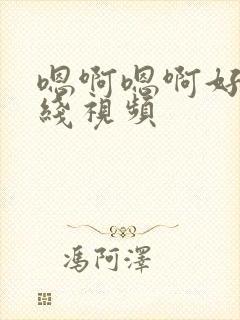 嗯啊嗯啊好
綫視頻
馮阿澤